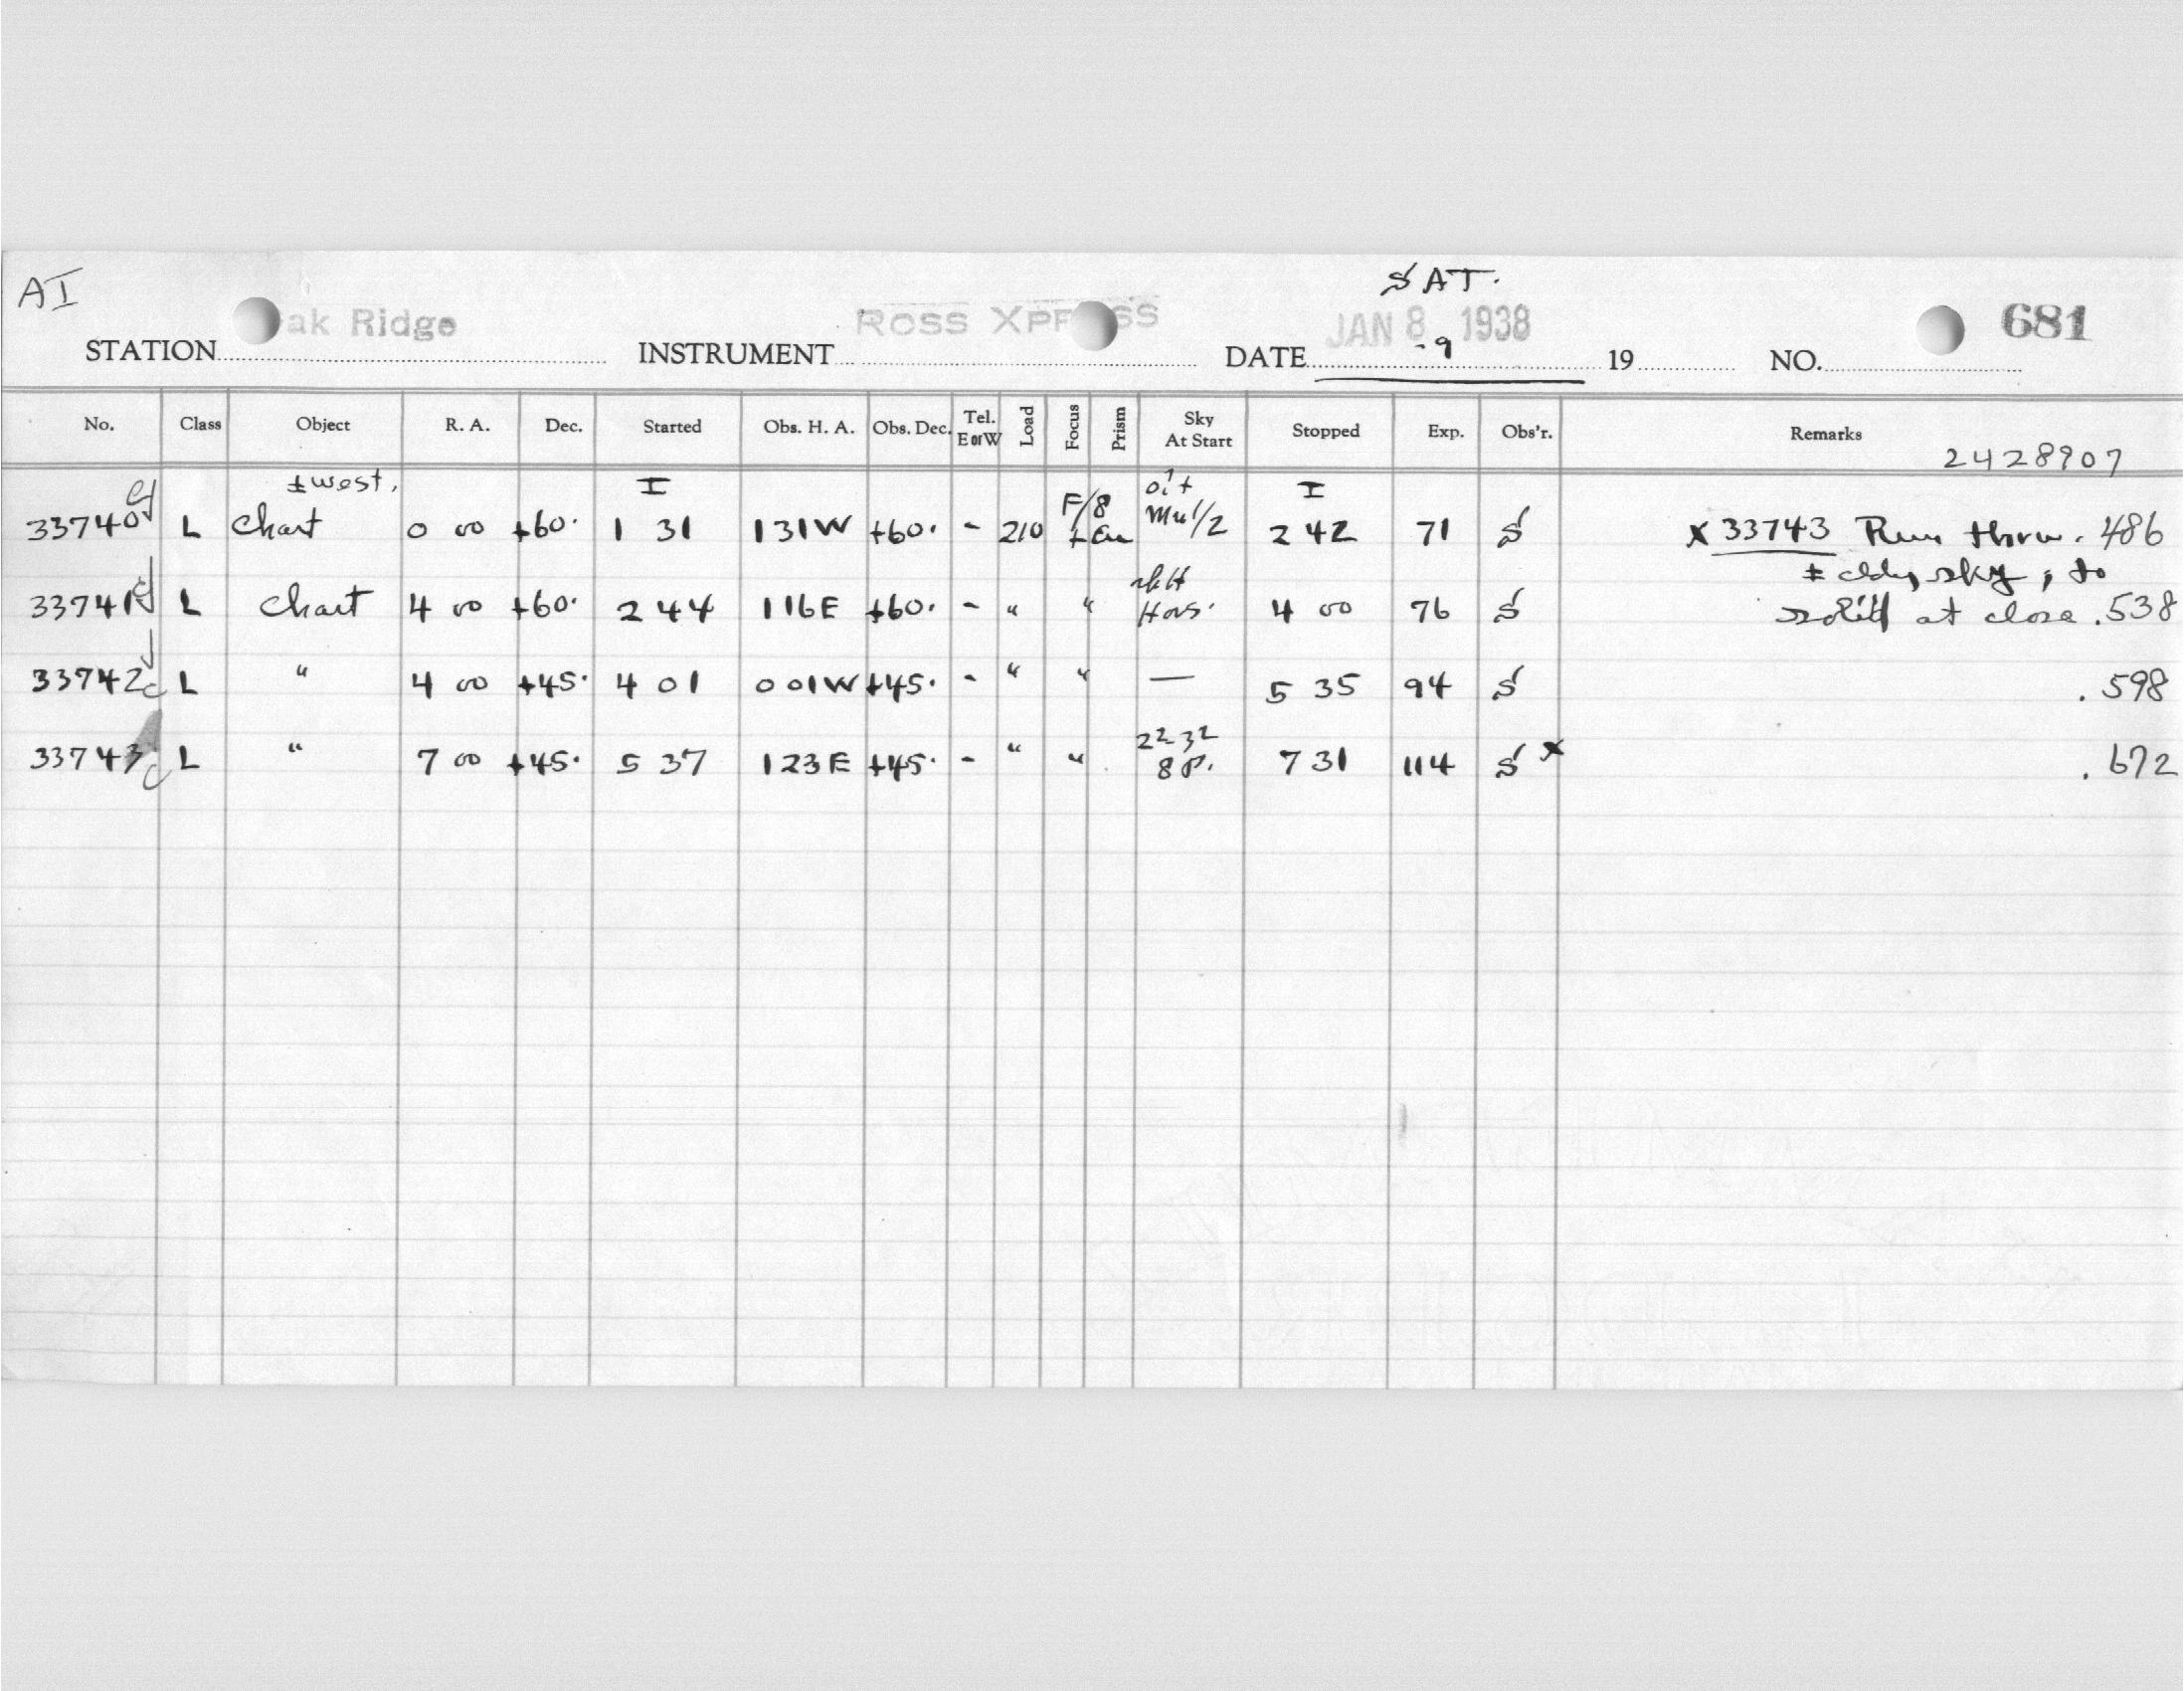 AI
SAT.
STATION ak Ridge INSTRUMENT ROSS XPR SS DATE JAN 8 -9 1938 19 NO. 681
No. Class Object R. A. Dec. Started Obs. H. A. Obs. Dec. Tel. E or W Load Focus Prism Sky At Start Stopped Exp. Obs'r. Remarks
2428907
± west. I I
33740 L Chart 0 00 +60. 1 31 131W +60. - 210 F/8 2 42 71 S x 33743 thru. .486
± cldy sky; to
33741 L Chart 4 00 +60. 2 44 116E +60. - " " 4 00 76 S solid at close .538
33742 L " 4 00 +45. 4 01 001W +45. - " " — 5 35 94 S .598
33743 L " 7 00 +45. 5 37 123E +45. - " " 22 32 8P. 7 31 114 S x .672